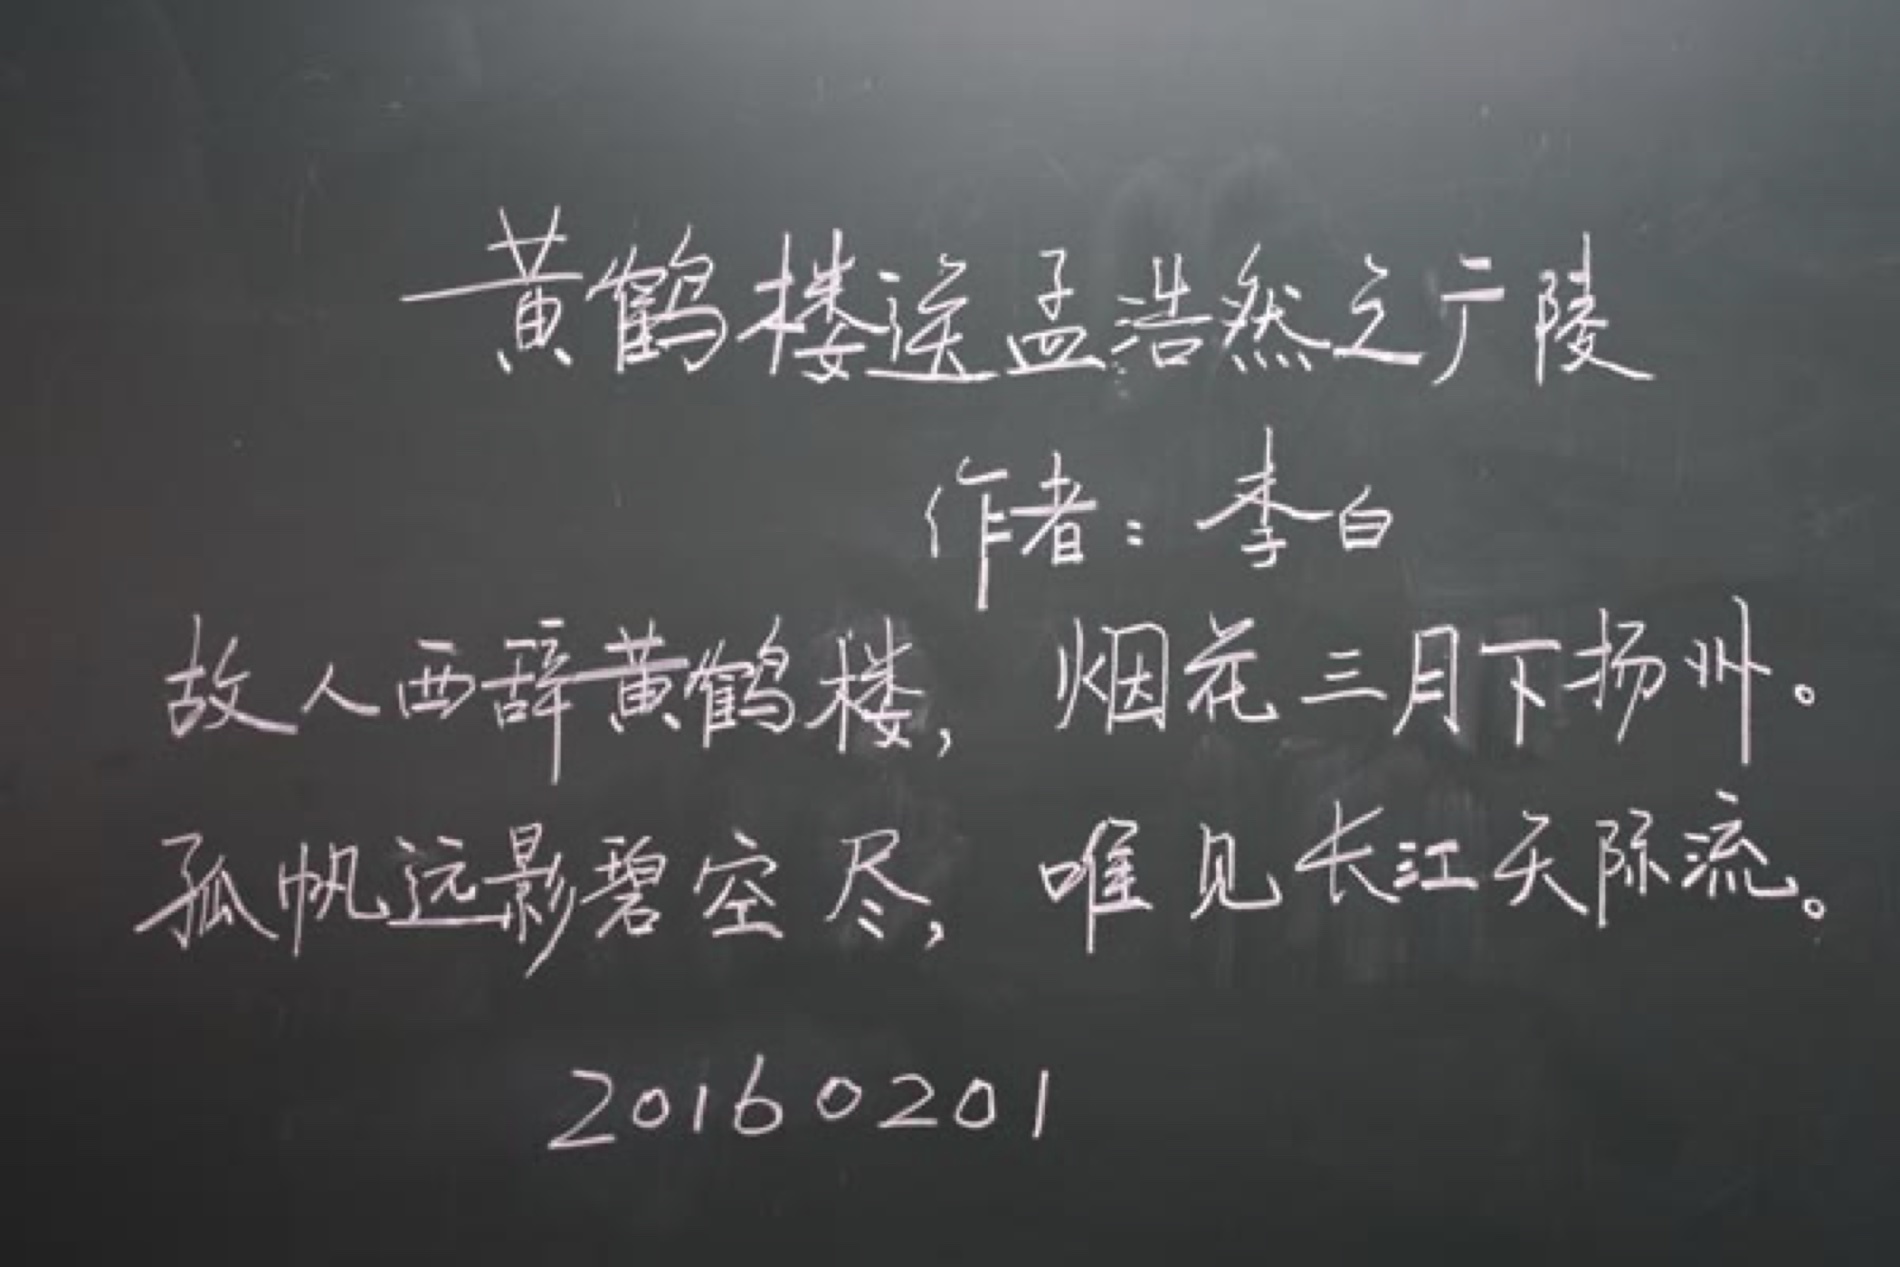 黄鹤楼送孟浩然之广陵
作者：李白
故人西辞黄鹤楼，烟花三月下扬州。
孤帆远影碧空尽，唯见长江天际流。
20160201